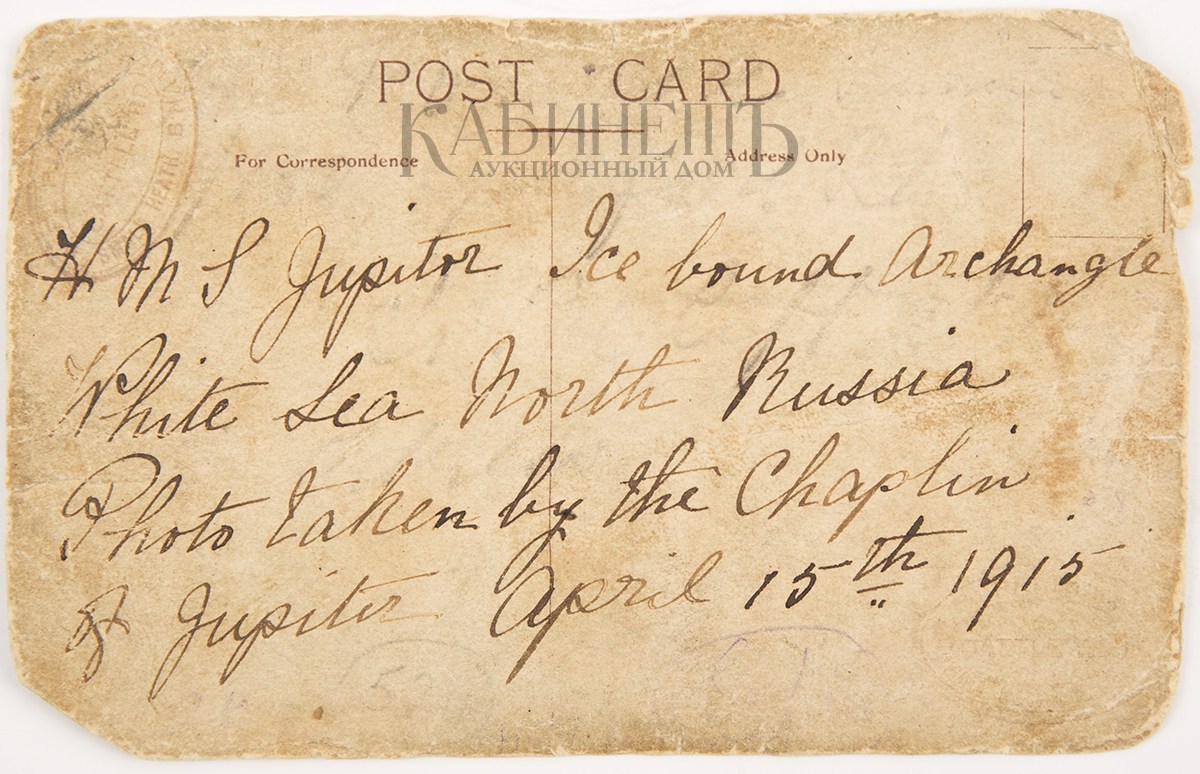 POST CARD
КАБИНЕТЪ
АУКЦИОННЫЙ ДОМ
For Correspondence
Address Only
H M S Jupitor Ice bound Archangle
White Sea North Russia
Photo taken by the Chaplin
of Jupiter April 15th 1915